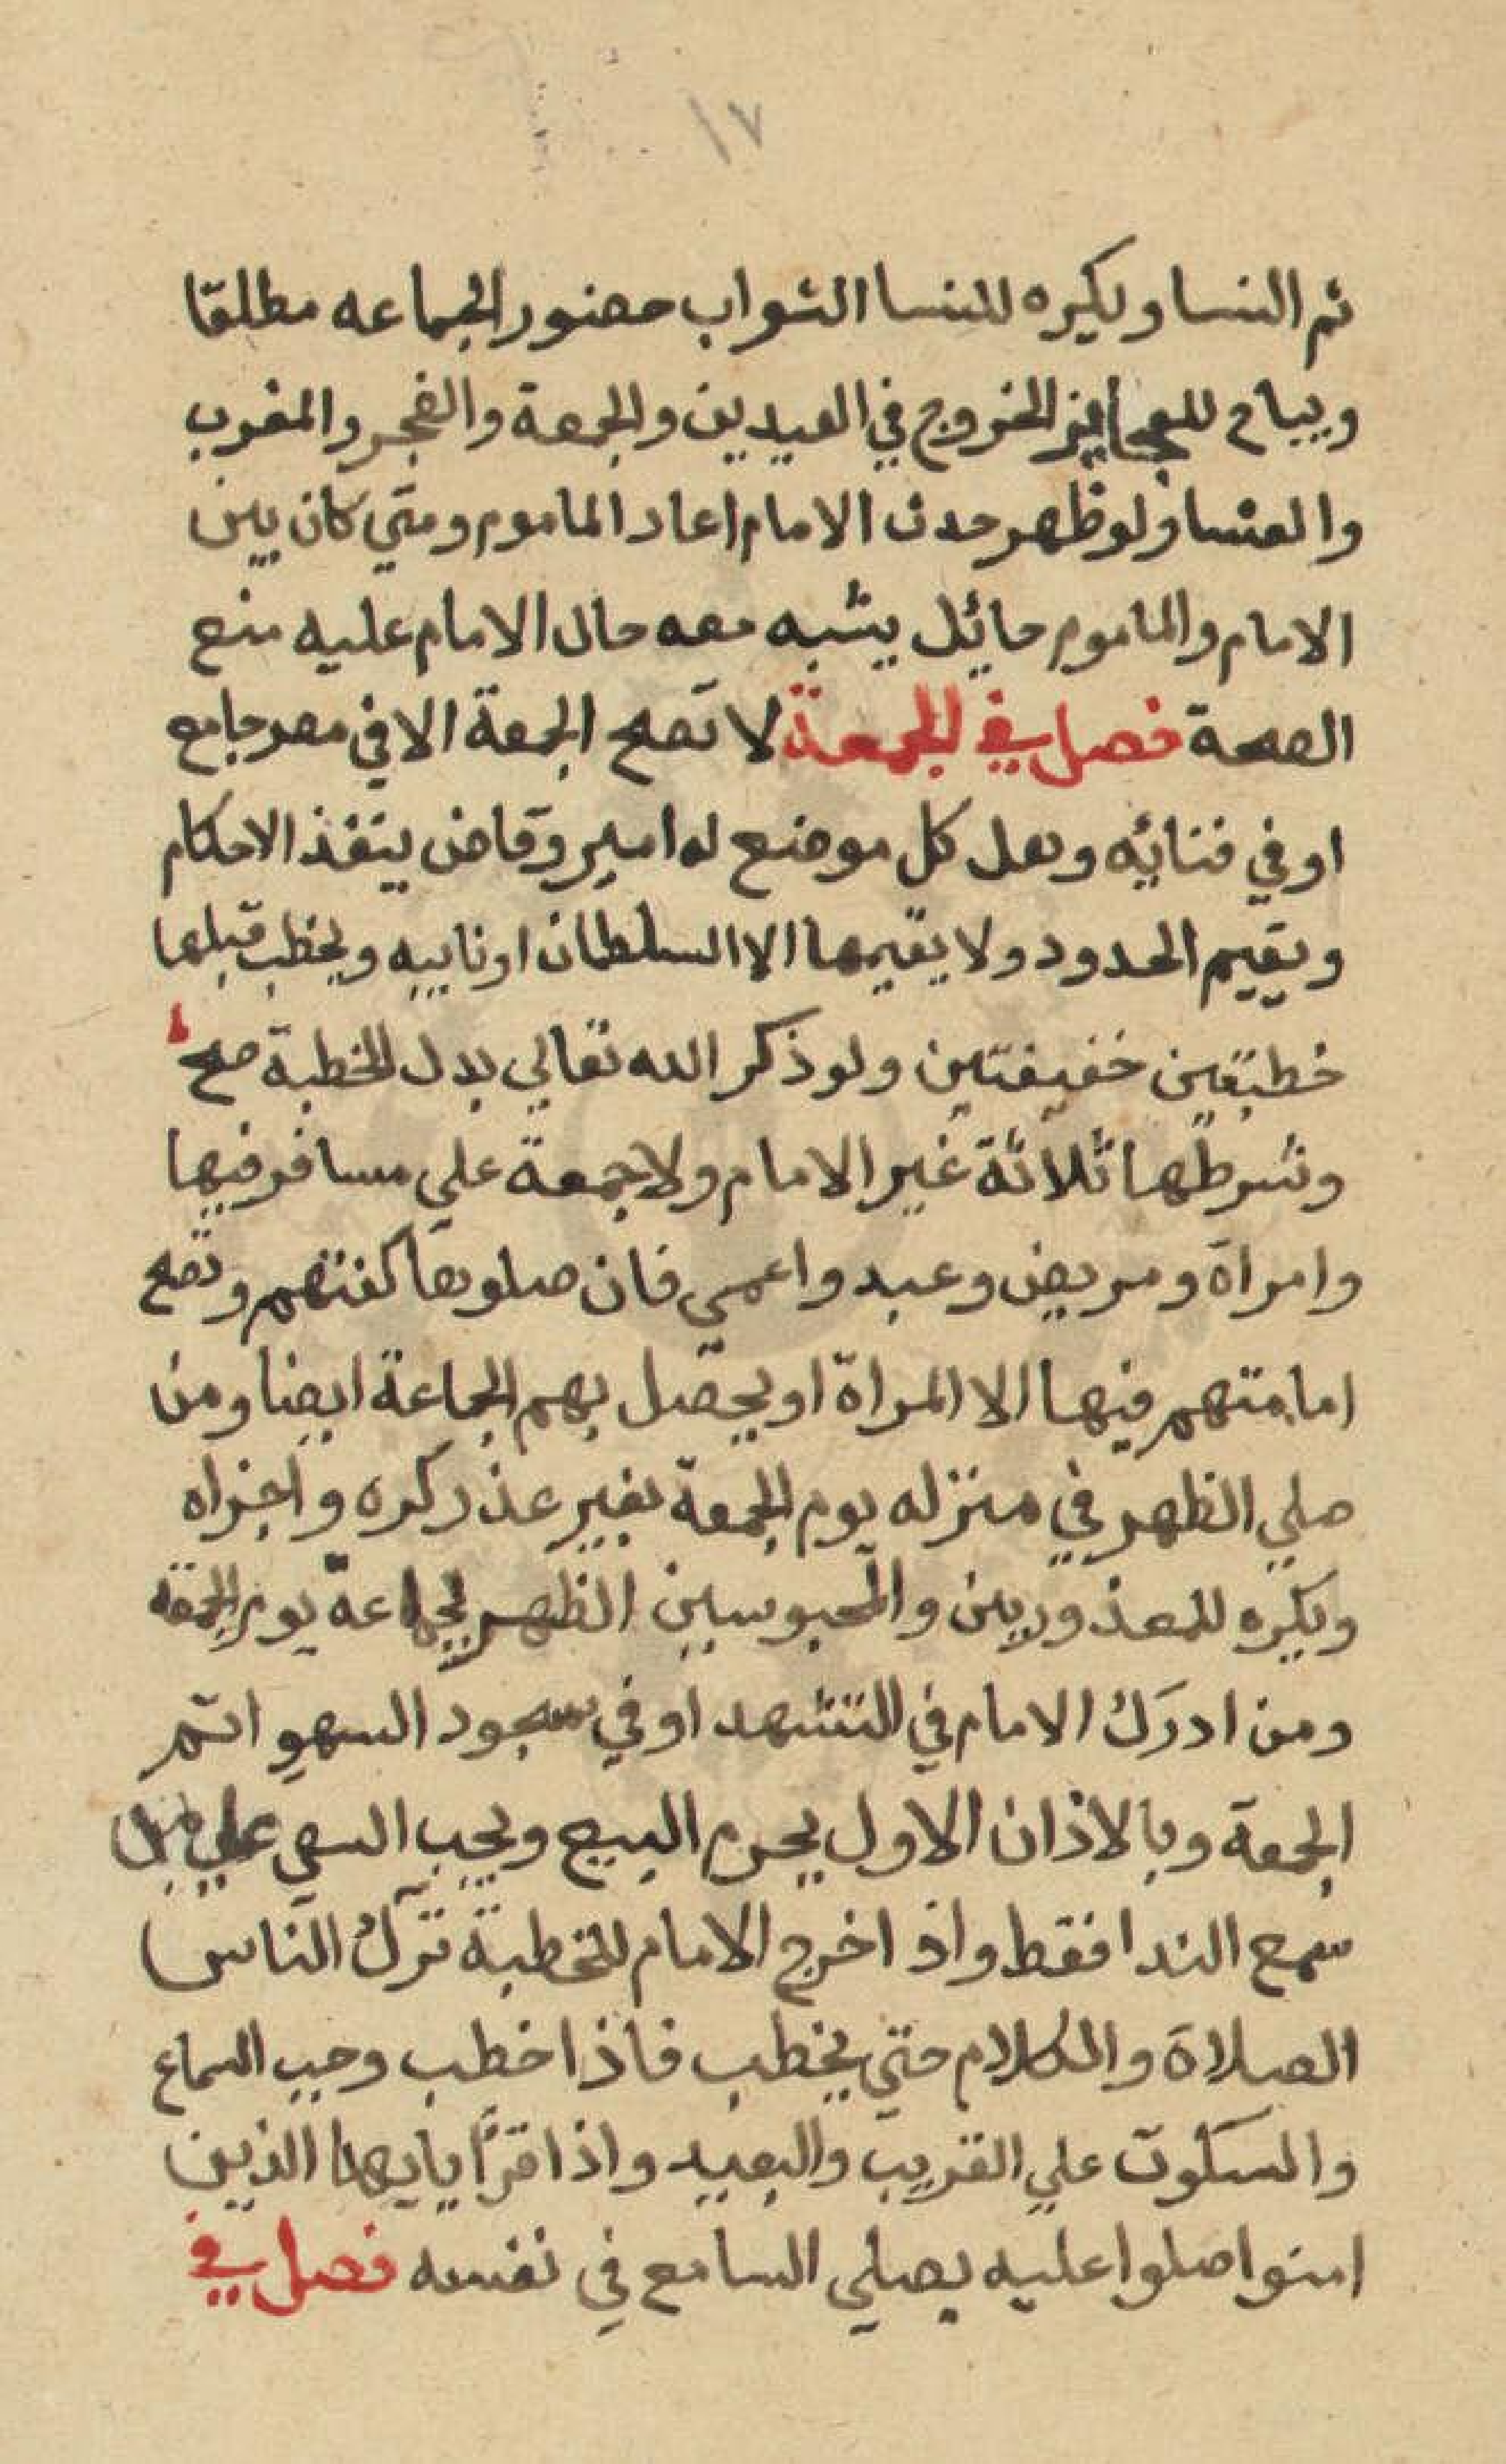 ١٧
ثم النسا ويكره للنسا الشواب حضور الجماعه مطلقا
ويباح للعجايز الخروج في العيدين والجمعة والفجر والمغرب
والعشا ولو ظهر حدث الامام اعاد الماموم ومتي كان بين
الامام والماموم حائل يشبه معه حال الامام عليه منع
الصحة فصل في الجمعة لا تصح الجمعة الا في مصر جامع
او في فنائه وهل كل موضع له امير وقاض ينفذ الاحكام
ويقيم الحدود ولا يقيمها الا السلطان او نايبه ويخطب قبلها
خطبتين خفيفتين ولو ذكر الله تعالي بدل الخطبة صح
وشرطها ثلاثة غير الامام ولا جمعة علي مسافر فيها
وامراة ومريض وعبد واعمي فان صلوها كفتهم وتصح
امامتهم فيها الا المراة او يحصل بهم الجماعة ايضا ومن
صلي الظهر في منزله يوم الجمعة بغير عذر كره واجزاه
ويكره للمعذورين والمحبوسين الظهر بجماعة يوم الجمعة
ومن ادرك الامام في التشهد او في سجود السهو اتم
الجمعة وبالاذان الاول يحرم البيع ويجب السعي علي
سمع الندا فقط واذا خرج الامام للخطبة ترك الناس
الصلاة والكلام حتي يخطب فاذا خطب وجب السماع
والسكوت علي القريب والبعيد واذا قرأ يا يها الذين
امنوا صلوا عليه يصلي السامع في نفسه فصل في